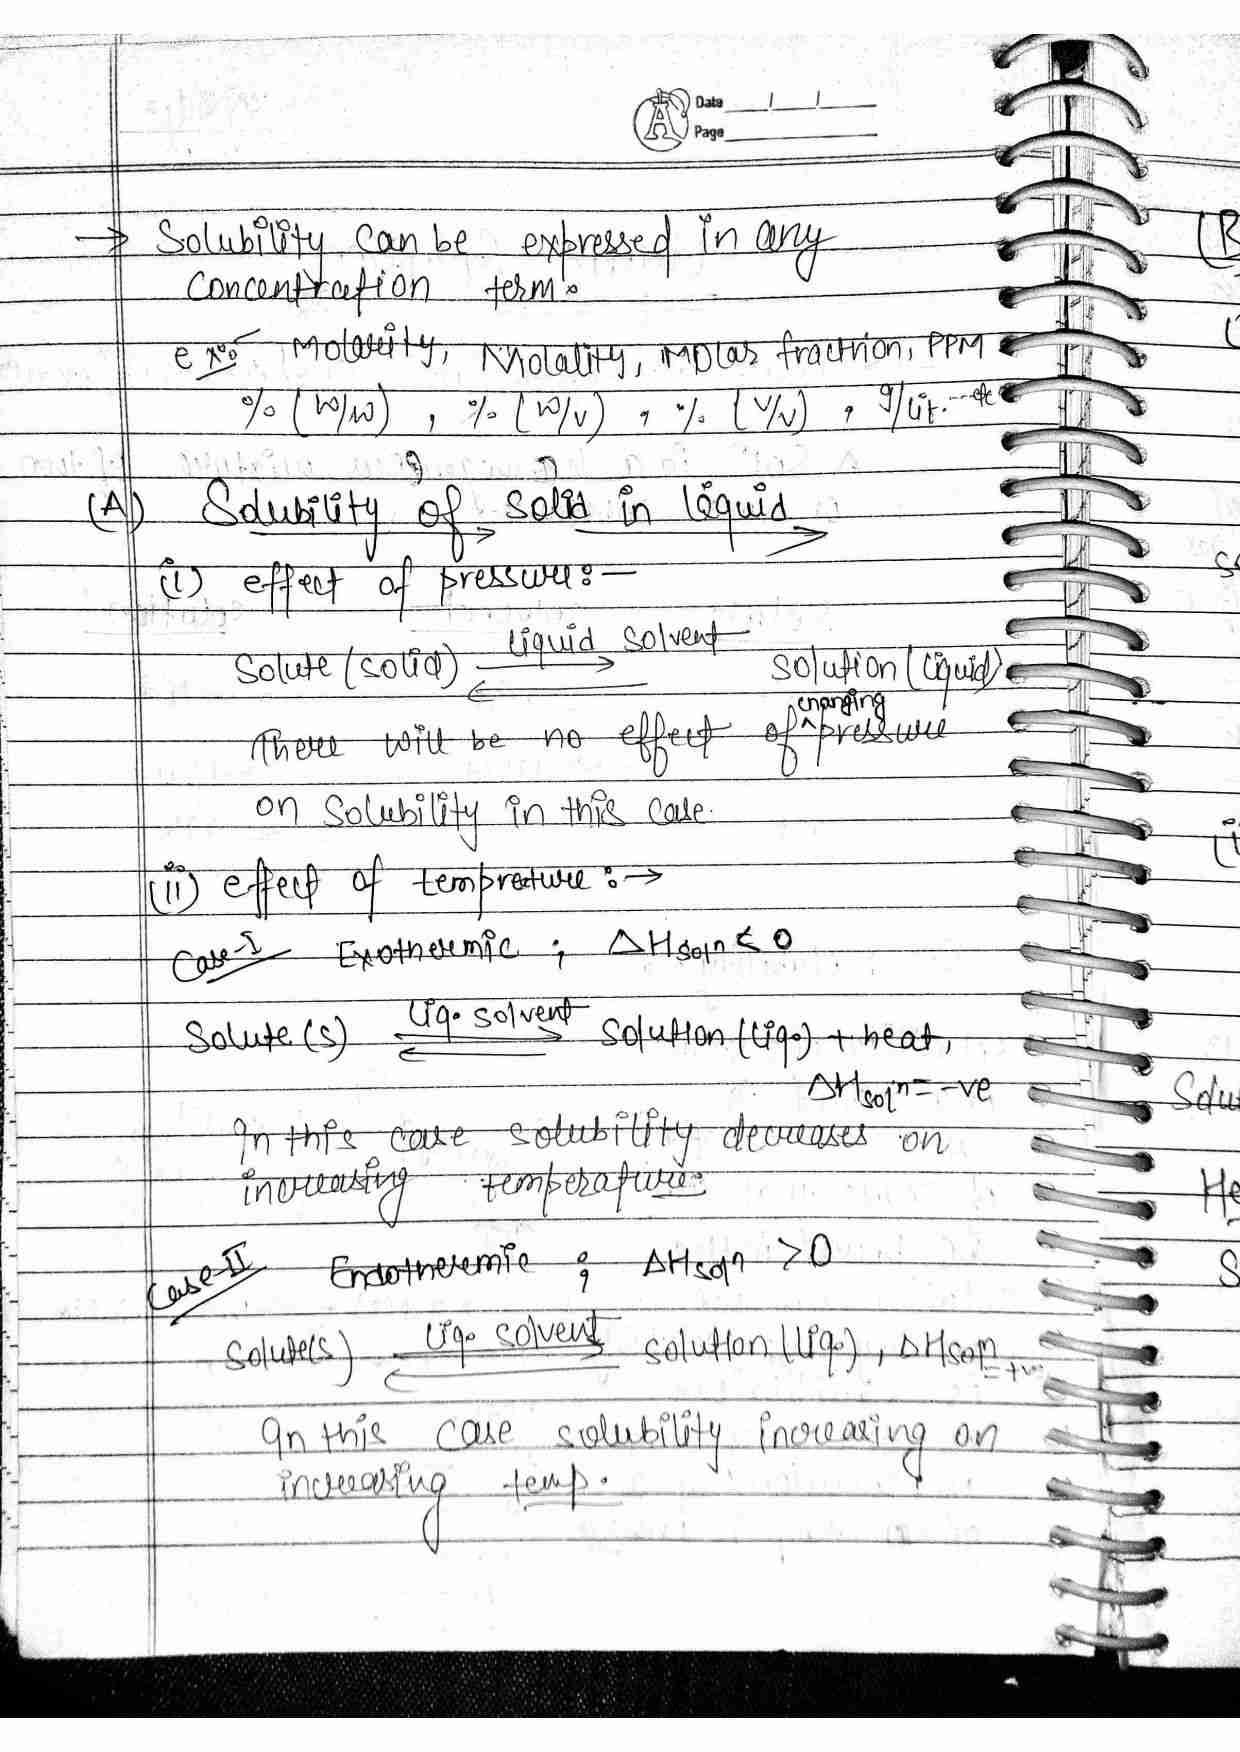 Date / /
Page
→ Solubility can be expressed in any
concentration term.
ex:- Molarity, Molality, Molar fraction, PPM
% (W/W) , % (W/V) , % (V/V) , g/lit. ---etc
(A) Solubility of solid in liquid
(i) effect of pressure :-
Solute (solid) ⇌ liquid solvent Solution (liquid)
There will be no effect of ^changing pressure
on solubility in this case.
(ii) effect of temprature :→
Case-I Exothermic ; ΔHsoln < 0
Solute (s) ⇌ liq. solvent Solution (liq.) + heat,
ΔHsoln = -ve
In this case solubility decreases on
increasing temperature.
Case-II Endothermic ; ΔHsoln > 0
Solute(s) ⇌ liq. solvent solution (liq.) , ΔHsoln = +ve
In this case solubility increasing on
increasing temp.
(B
(i
Solu
He
S